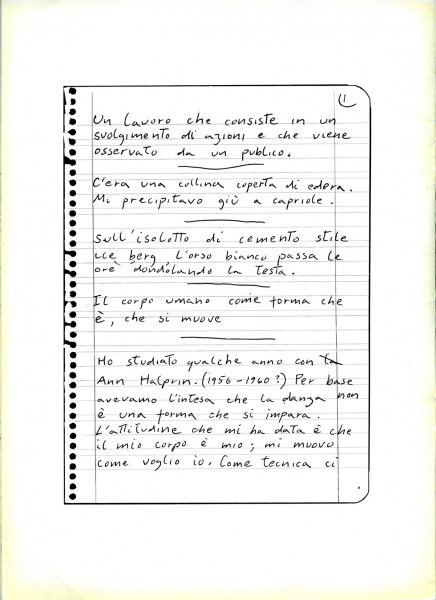 1
Un lavoro che consiste in un
svolgimento di azioni e che viene
osservato da un publico.
C'era una collina coperta di edera.
Mi precipitavo giù a capriole.
Sull'isolotto di cemento stile
ice berg l'orso bianco passa le
ore dondolando la testa.
Il corpo umano come forma che
è, che si muove
Ho studiato qualche anno con
Ann Halprin. (1956-1960?) Per base
avevamo l'intesa che la danza non
è una forma che si impara.
L'attitudine che mi ha data è che
il mio corpo è mio; mi muovo
come voglio io. Come tecnica ci